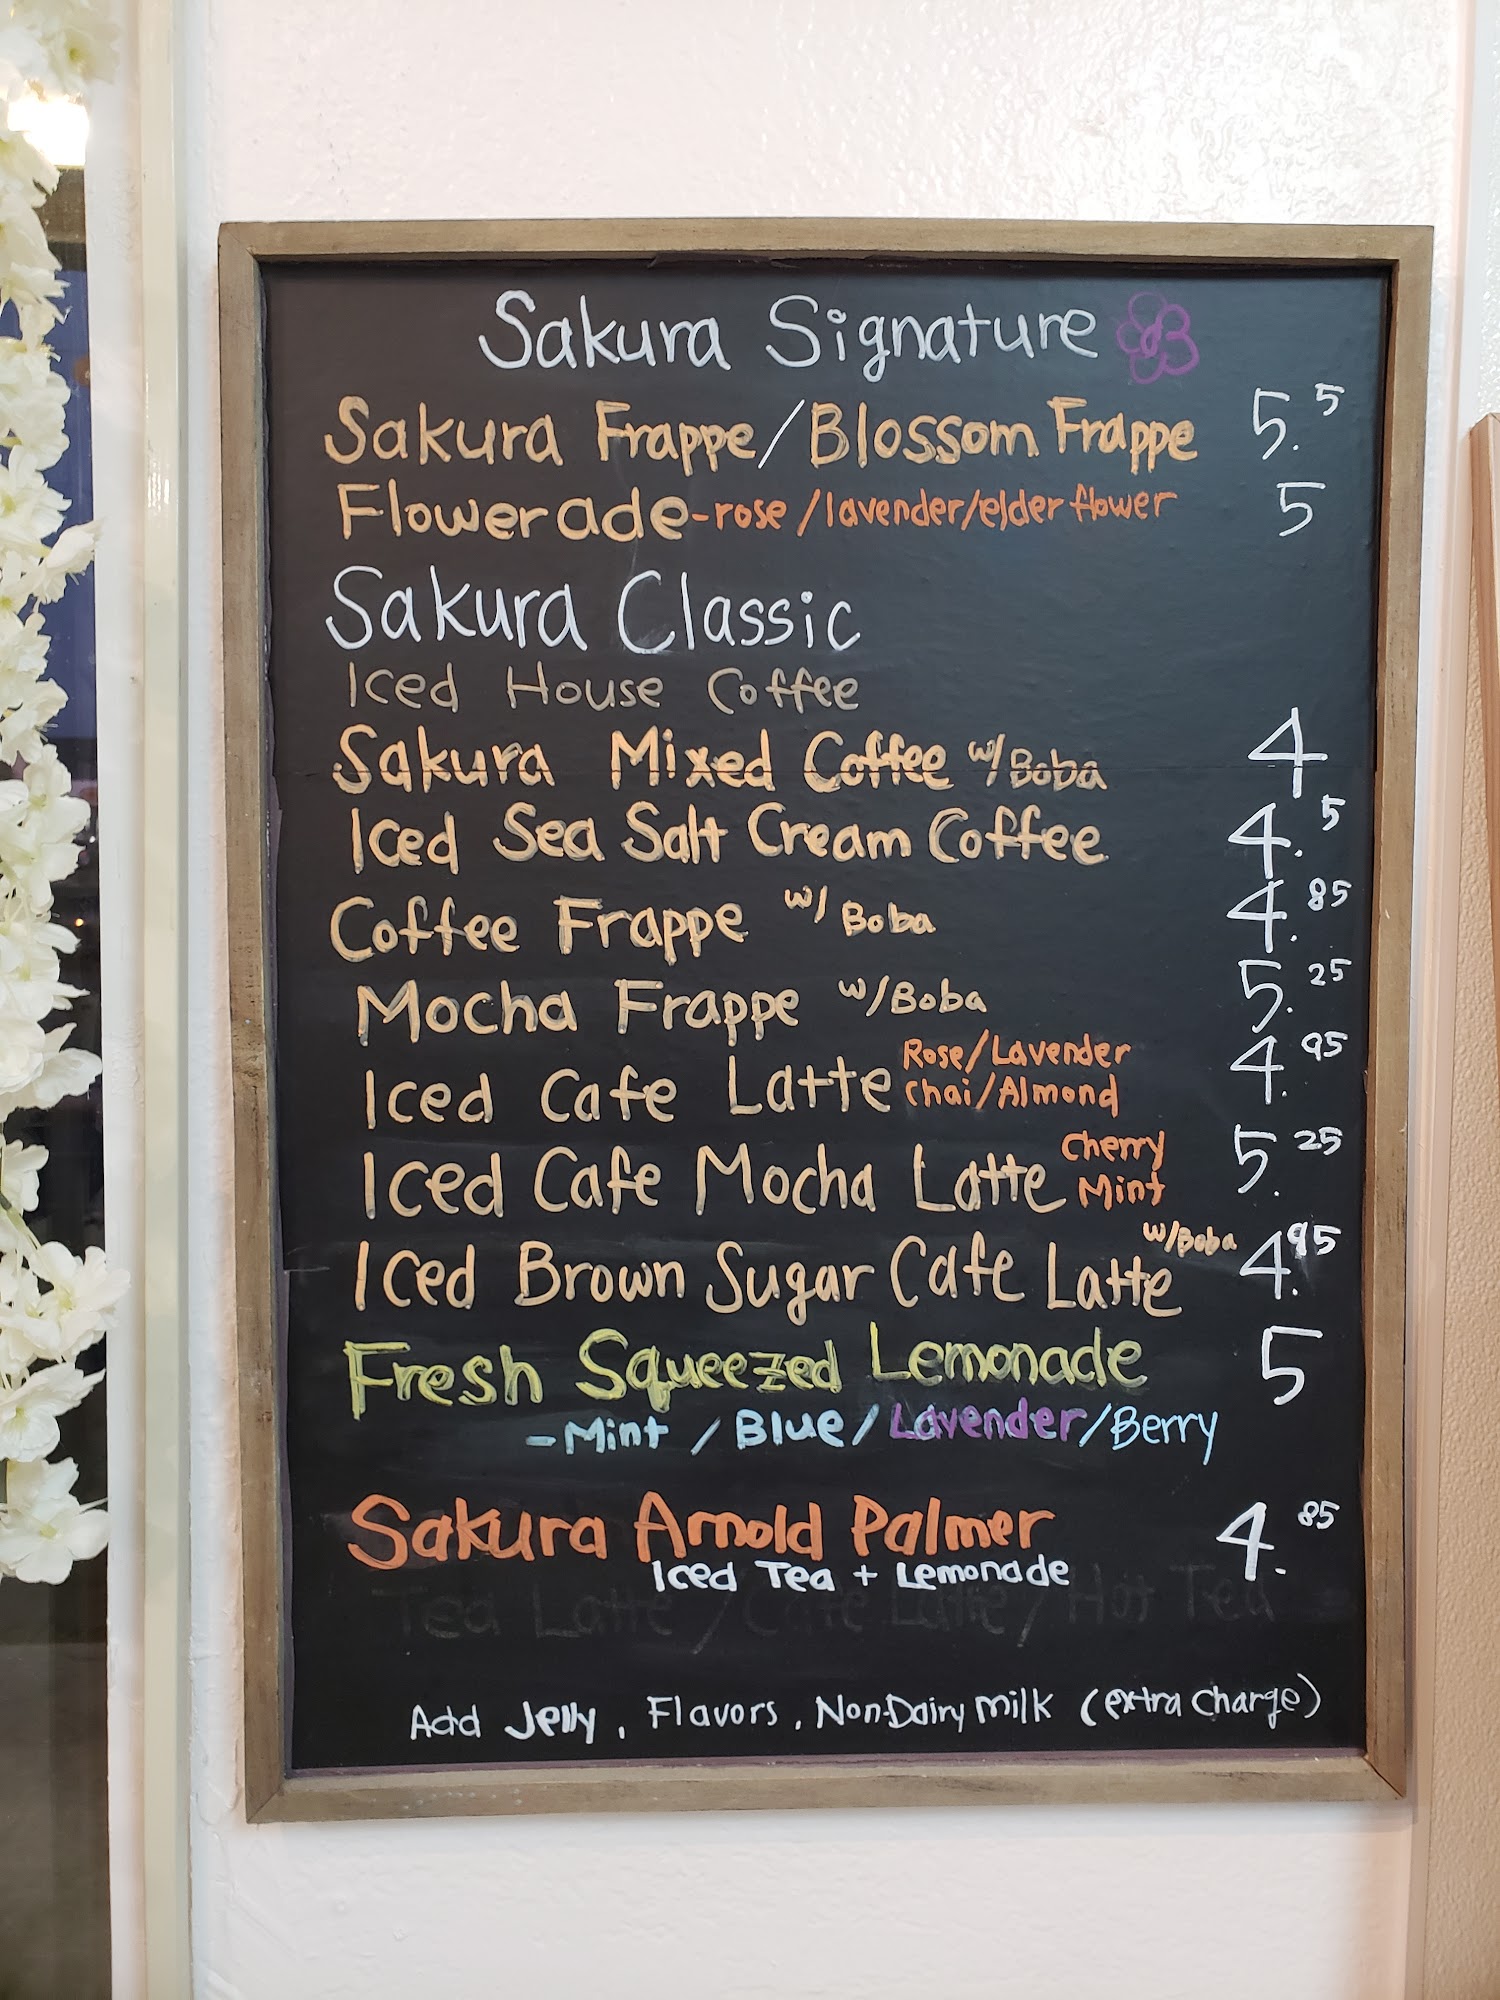 Sakura Signature
Sakura Frappe/Blossom Frappe 5.5
Flowerade-rose/lavender/elderflower 5
Sakura Classic
Iced House Coffee
Sakura Mixed Coffee w/Boba 4
Iced Sea Salt Cream Coffee 4.5
Coffee Frappe w/Boba 4.85
Mocha Frappe w/Boba 5.25
Iced Cafe Latte Rose/Lavender 4.95
Chai/Almond
Iced Cafe Mocha Latte Cherry 5.25
Mint
Iced Brown Sugar Cafe Latte w/Boba 4.95
Fresh Squeezed Lemonade 5
-Mint/Blue/Lavender/Berry
Sakura Arnold Palmer 4.85
Iced Tea + Lemonade
Tea Latte/Cafe Latte/Hot Tea
Add Jelly, Flavors, Non-Dairy milk (extra charge)